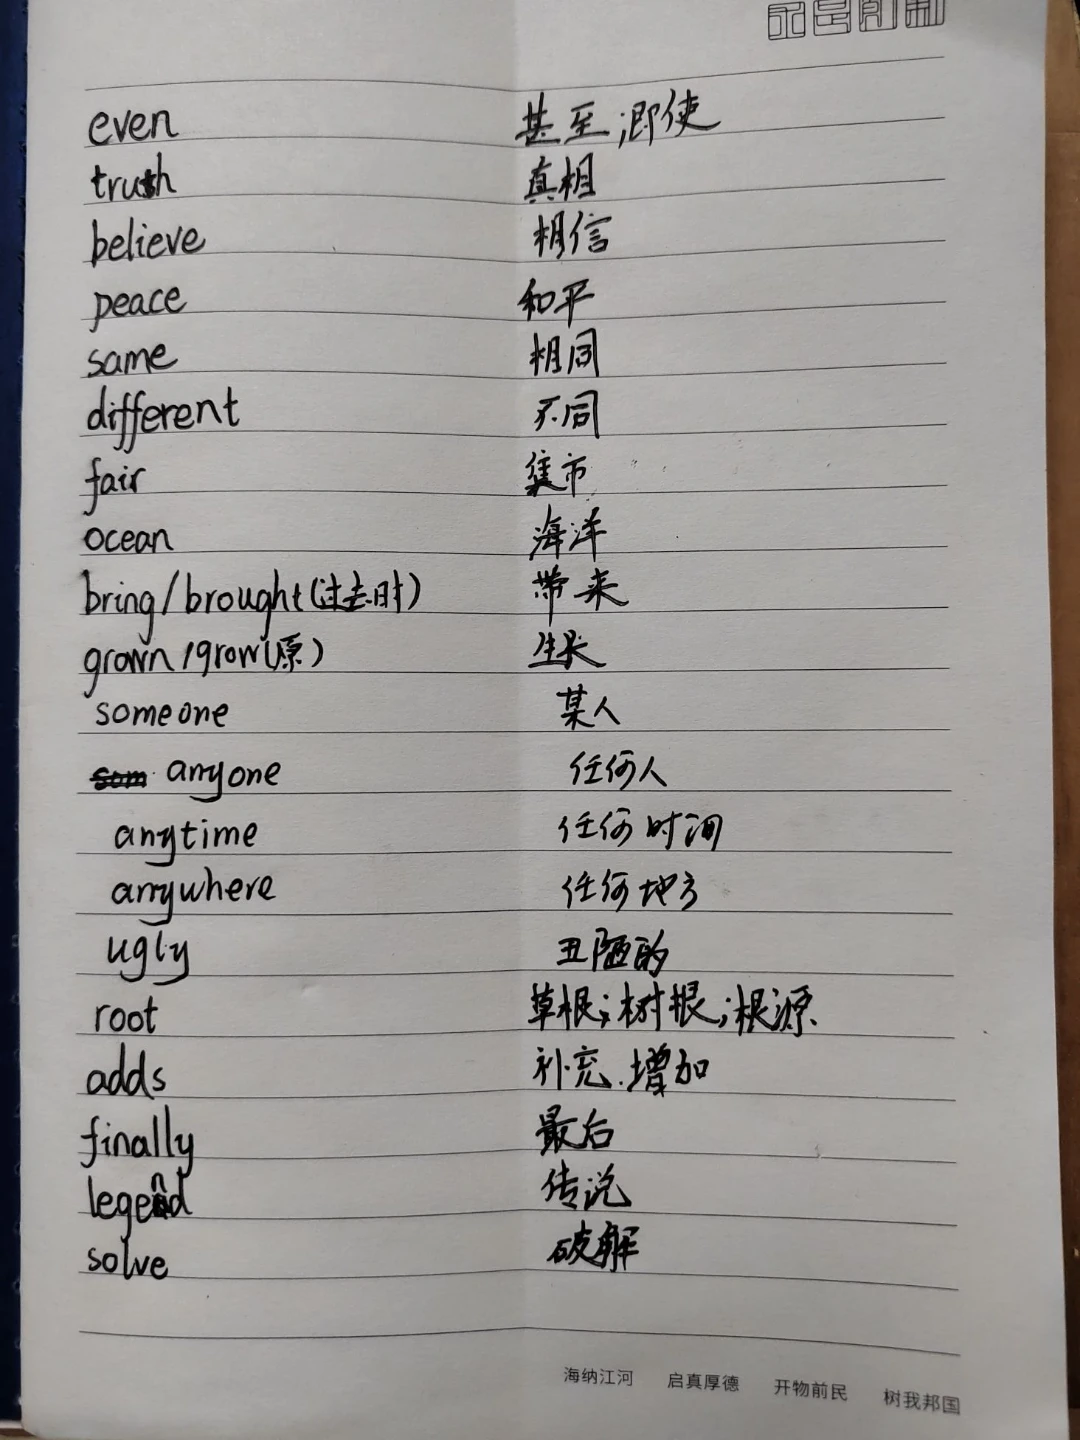 even 甚至;即使
truth 真相
believe 相信
peace 和平
same 相同
different 不同
fair 集市
ocean 海洋
bring/brought(过去时) 带来
grown/grow(原) 生长
someone 某人
anyone 任何人
anytime 任何时间
anywhere 任何地方
ugly 丑陋的
root 草根;树根;根源
adds 补充.增加
finally 最后
legend 传说
solve 破解
海纳江河 启真厚德 开物前民 树我邦国